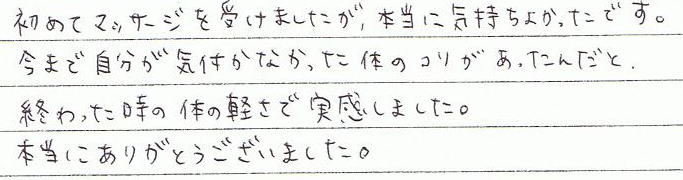 初めてマッサージを受けましたが、本当に気持ちよかったです。
今まで自分が気付かなかった体のコリがあったんだと、
終わった時の体の軽さで実感しました。
本当にありがとうございました。